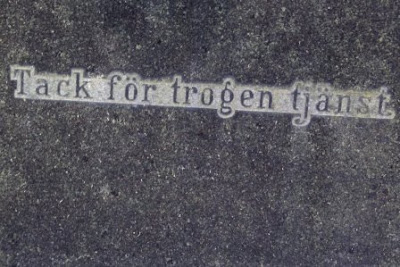 Tack för trogen tjänst.